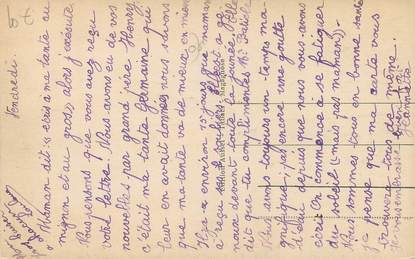 Vendredi
Maman dit : « écris à ma tante au
mignon et au gros, alors j'exécute.
Nous pensons que vous avez reçu
votre lettre. Nous avons eu de vos
nouvelles par grand père Henry
c'était ma tante Germaine qui
leur en avait donnés nous savons
que ma tante va de mieux en mieux
Il y a environ 15 jours que maman
a reçu
devant toute la journée. Elle
dit que tu complimentes M.
Nous avons toujours un temps ma-
gnifique; pas encore une goutte
d'eau depuis que nous vous avons
écrit. On commence à se fatiguer
du soleil (mais pas maman).
Nous sommes tous en bonne santé
je pense que ma carte vous
trouvera tous de même.